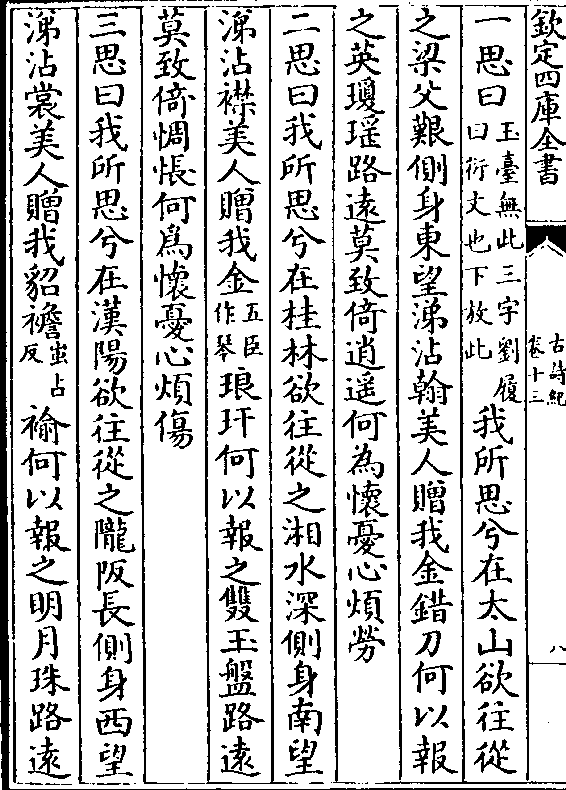 欽定四庫全書
古詩紀
卷十三
八
一思曰玉臺無此三字劉履曰衍文也下放此我所思兮在太山欲往從
之梁父艱側身東望涕沾翰美人贈我金錯刀何以報
之英瓊瑤路遠莫致倚逍遥何為懷憂心煩勞
二思曰我所思兮在桂林欲往從之湘水深側身南望
涕沾襟美人贈我金五臣作琴琅玕何以報之雙玉盤路遠
莫致倚惆悵何爲懷憂心煩傷
三思曰我所思兮在漢陽欲往從之隴阪長側身西望
涕沾裳美人贈我貂襜蚩占反褕何以報之明月珠路遠